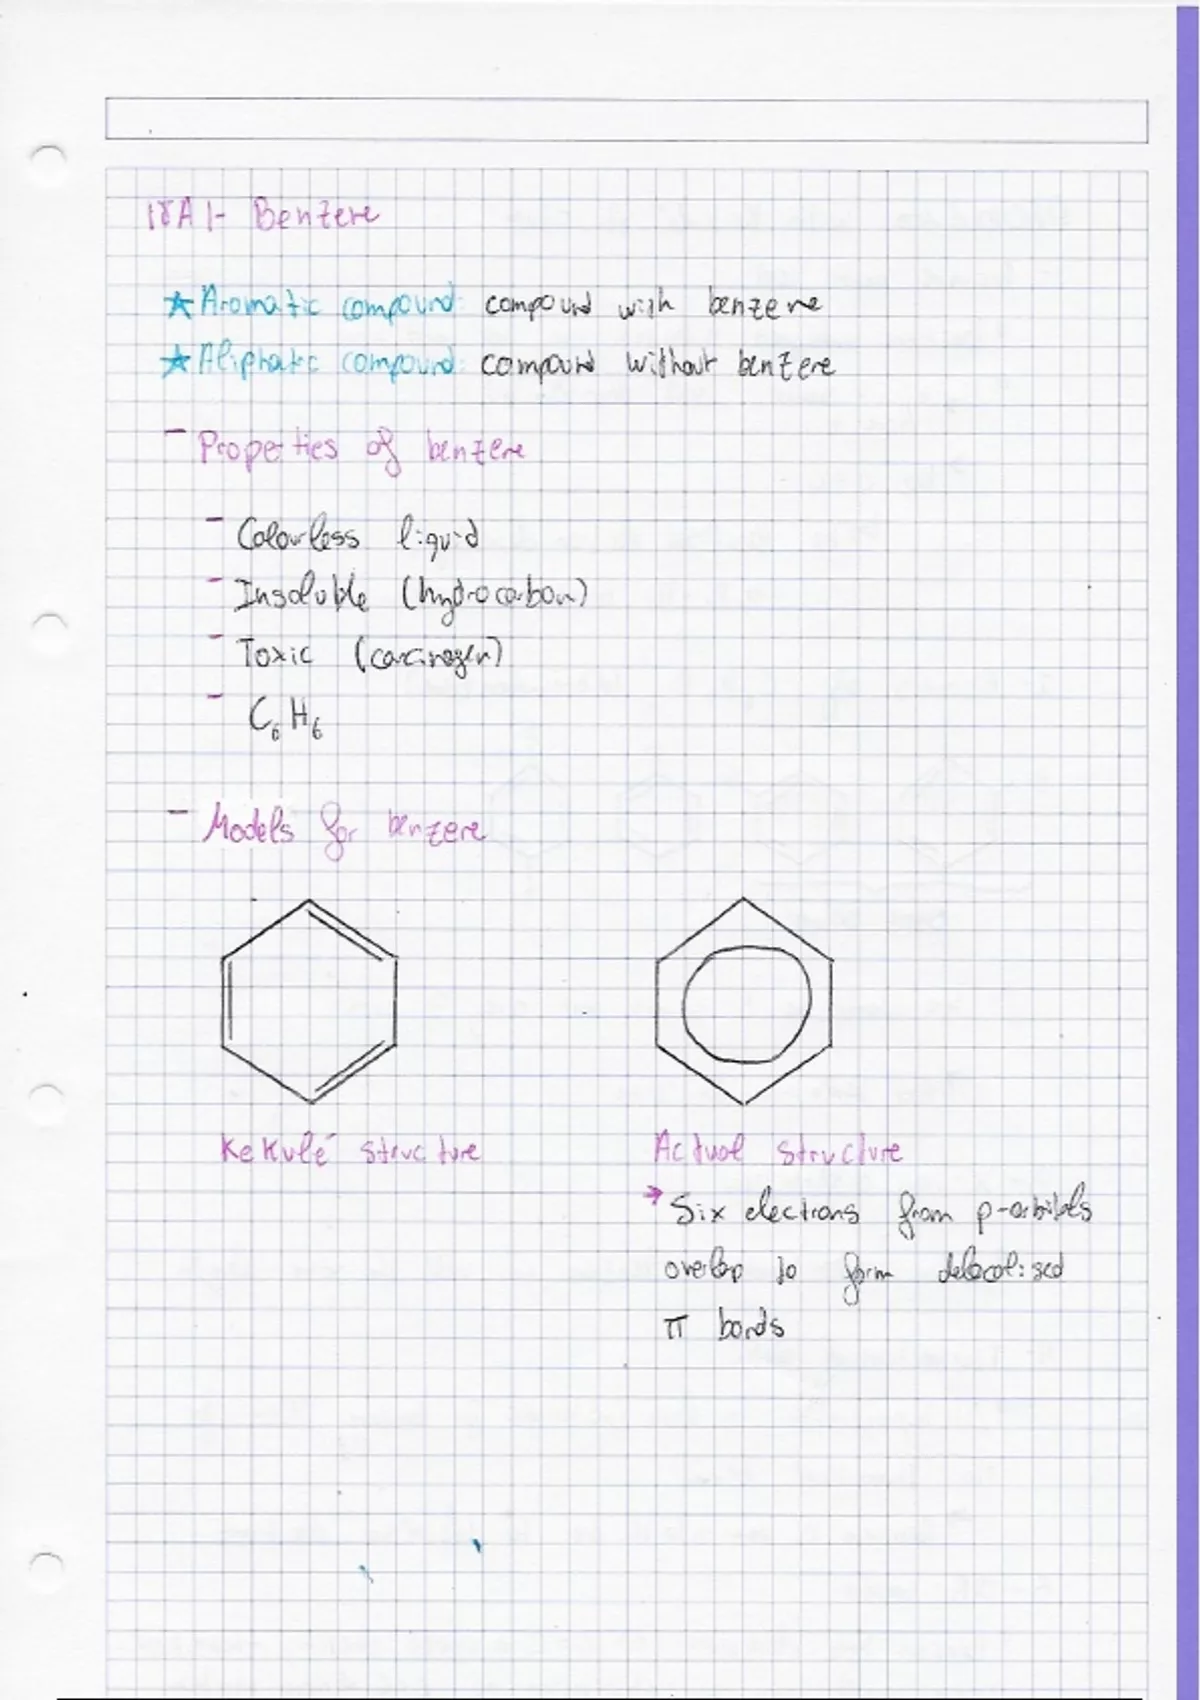 18A1- Benzene
★ Aromatic compound: compound with benzene
★ Aliphatic compound: compound without benzene
- Properties of benzene
- Colourless liquid
- Insoluble (hydrocarbon)
- Toxic (carcinogen)
- C₆H₆
- Models for benzene
Kekulé structure Actual structure
→ Six electrons from p-orbitals
overlap to form delocalised
π bonds